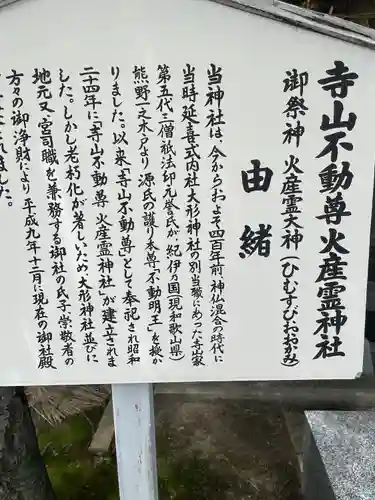 寺山不動尊火産霊神社
御祭神 火産霊大神(ひむすびおおかみ)
由緒
当神社は、今からおよそ四百年前 神仏混合の時代に
当時延喜式内社大形神社の別当職にあった寺山家
第五代三僧祇法印元誉氏が、紀伊乃国(現和歌山県)
熊野一之木戸なり 源氏の護り本尊「不動明王」を授か
りました。以来「寺山不動尊」として奉祀され昭和
二十四年に「寺山不動尊 火産霊神社」が建立されま
した。しかし老朽化が著しいため、大形神社並びに
地元又、宮司職を兼務する御社の氏子、崇敬者の
方々の御浄財により平成九年十二月に現在の御社殿
されました。